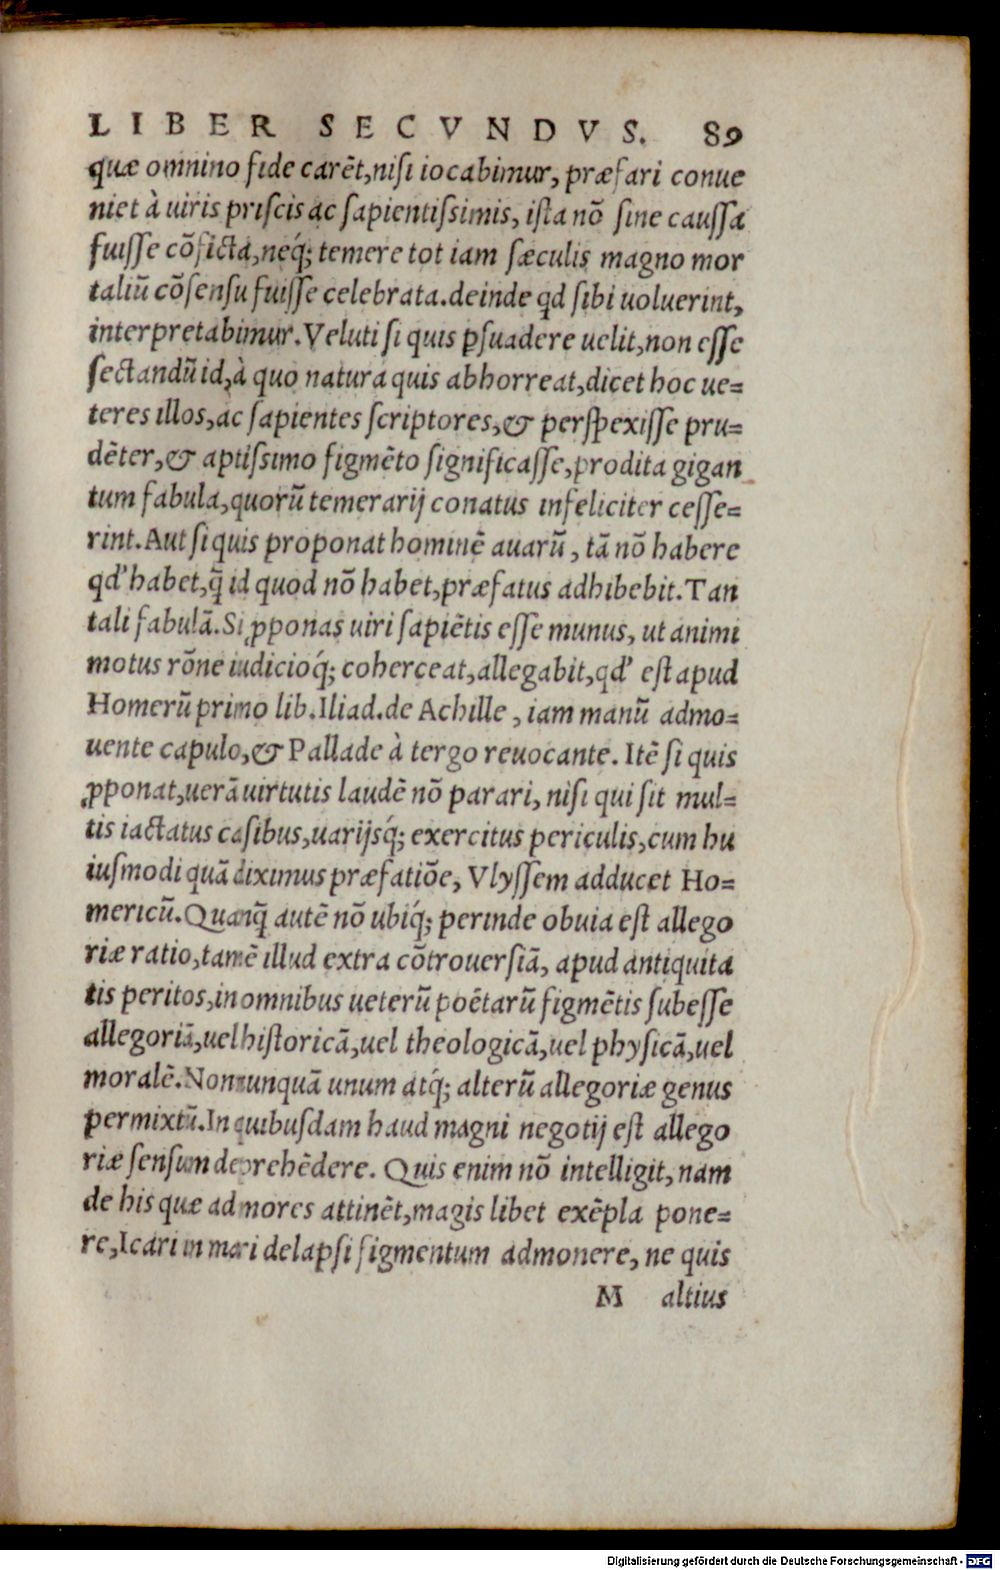 LIBER SECVNDVS. 89
quæ omnino fide carẽt, nisi iocabimur, præfari conue
niet à uiris priscis ac sapientissimis, ista nõ sine caussa
fuisse cõficta, neq́; temere tot iam sæculis magno mor
taliũ cõsensu fuisse celebrata. deinde qd sibi uoluerint,
interpretabimur. Veluti si quis ꝑsuadere uelit, non esse
sectandũ id, à quo natura quis abhorreat, dicet hoc ue=
teres illos, ac sapientes scriptores, & perspexisse pru=
dẽter, & aptissimo figmẽto significasse, prodita gigan
tum fabula, quorũ temerarij conatus infeliciter cesse=
rint. Aut si quis proponat hominẽ auarũ, tã nõ habere
qd' habet, q̃ id quod nõ habet, præfatus adhibebit. Tan
tali fabulã. Si ꝓponas uiri sapiẽtis esse munus, ut animi
motus rõne iudicioq́; coherceat, allegabit, qd' est apud
Homerũ primo lib. Iliad. de Achille, iam manũ admo=
uente capulo, & Pallade à tergo reuocante. Itẽ si quis
ꝓponat, uerã uirtutis laudẽ nõ parari, nisi qui sit mul=
tis iactatus casibus, uarijsq́; exercitus periculis, cum hu
iusmodi quã diximus præfatiõe, Vlyssem adducet Ho=
mericũ. Quanq̃ autẽ nõ ubiq́; perinde obuia est allego
riæ ratio, tamẽ illud extra cõtrouersiã, apud antiquita
tis peritos, in omnibus ueterũ poëtarũ figmẽtis subesse
allegoriã, uel historicã, uel theologicã, uel physicã, uel
moralẽ. Nonnunquã unum atq́; alterũ allegoriæ genus
permixtũ. In quibusdam haud magni negotij est allego
riæ sensum deprehẽdere. Quis enim nõ intelligit, nam
de his quæ ad mores attinẽt, magis libet exẽpla pone=
re, Icari in mari delapsi figmentum admonere, ne quis
M altius
Digitalisierung gefördert durch die Deutsche Forschungsgemeinschaft - DFG